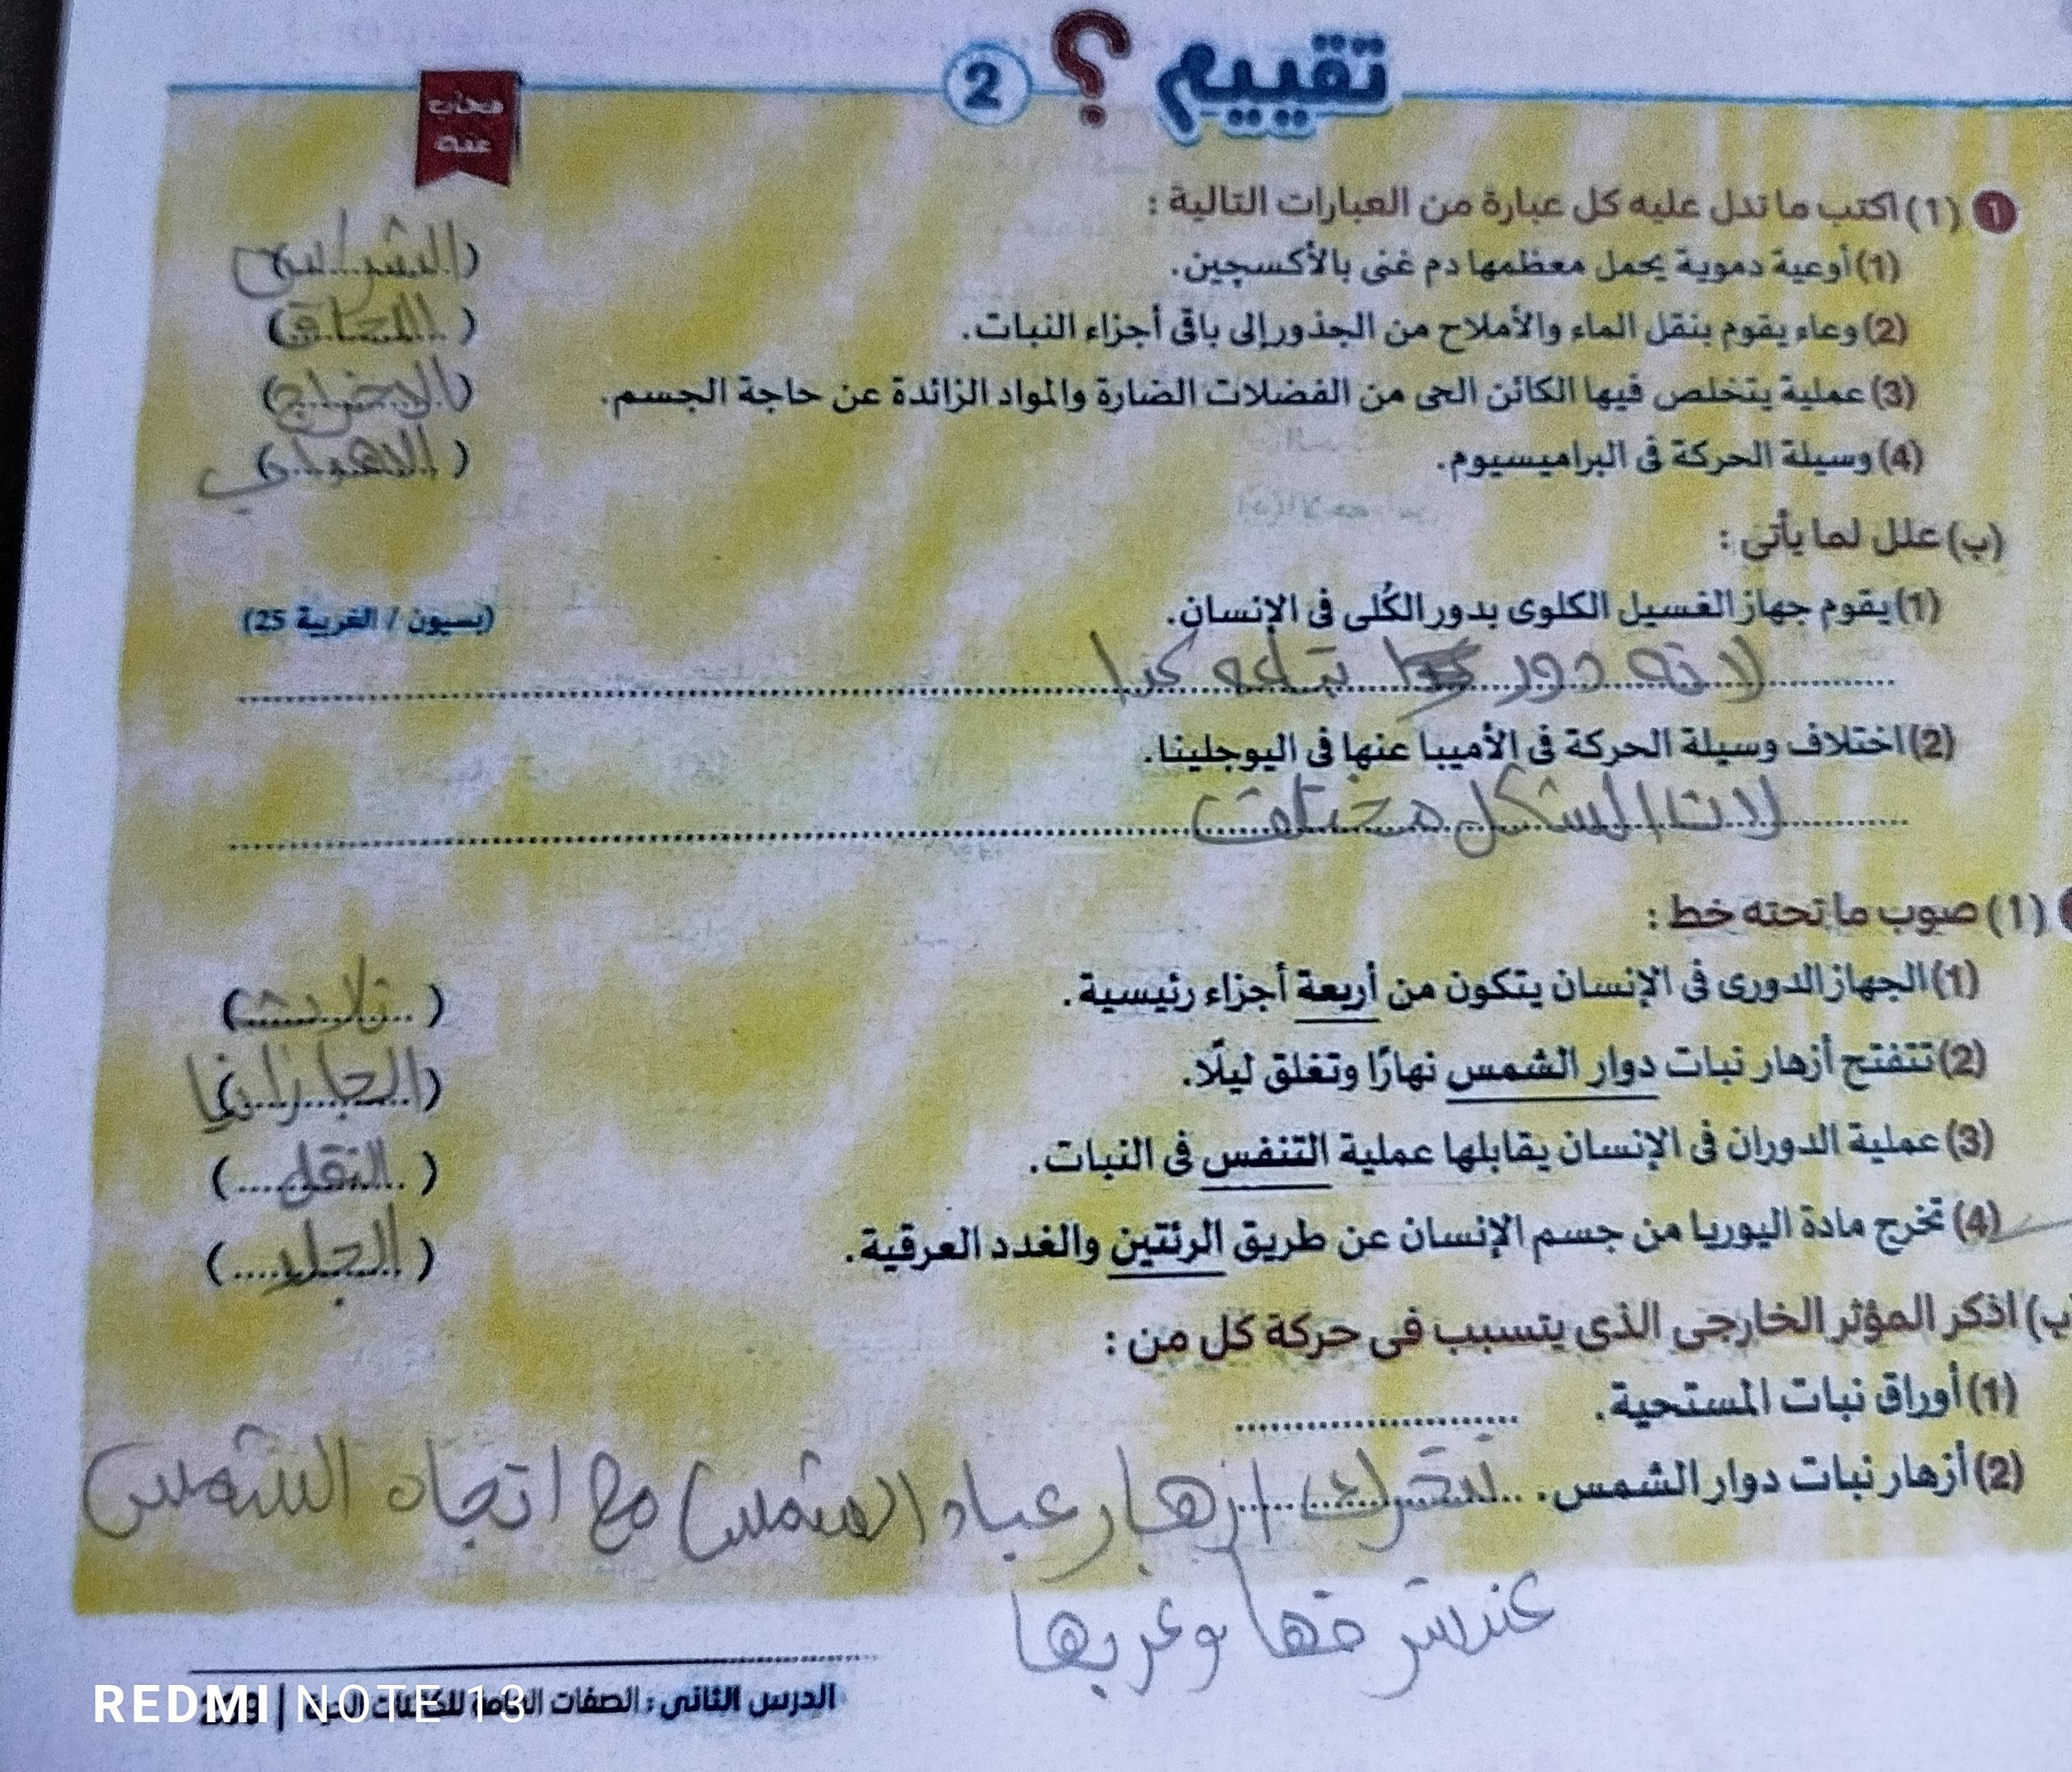 تقييم ؟ 2
مجاب عنه
1 (1) اكتب ما تدل عليه كل عبارة من العبارات التالية :
(1) أوعية دموية يحمل معظمها دم غنى بالأكسچين. (الشراسى)
(2) وعاء يقوم بنقل الماء والأملاح من الجذور إلى باقى أجزاء النبات. (الساق)
(3) عملية يتخلص فيها الكائن الحى من الفضلات الضارة والمواد الزائدة عن حاجة الجسم. (الاخراج)
(4) وسيلة الحركة فى البراميسيوم. (الاهداب)
(ب) علل لما يأتى :
(1) يقوم جهاز الغسيل الكلوى بدور الكُلى فى الإنسان. (بسيون / الغربية 25)
لانه دور بتاعه كدا
(2) اختلاف وسيلة الحركة فى الأميبا عنها فى اليوجلينا.
لان الشكل مختلف
(1) صوب ما تحته خط :
(1) الجهاز الدورى فى الإنسان يتكون من أربعة أجزاء رئيسية. (ثلاث)
(2) تتفتح أزهار نبات دوار الشمس نهارًا وتغلق ليلًا. (الجازانيا)
(3) عملية الدوران فى الإنسان يقابلها عملية التنفس فى النبات. (النقل)
(4) تخرج مادة اليوريا من جسم الإنسان عن طريق الرئتين والغدد العرقية. (الجلد)
(ب) اذكر المؤثر الخارجى الذى يتسبب فى حركة كل من :
(1) أوراق نبات المستحية.
(2) أزهار نبات دوار الشمس. تتحرك ازهار عباد (الشمس) مع اتجاه الشمس
عند شرقها وغربها
الدرس الثانى : الصفات العامة للكائنات الحية |
REDMI NOTE 13